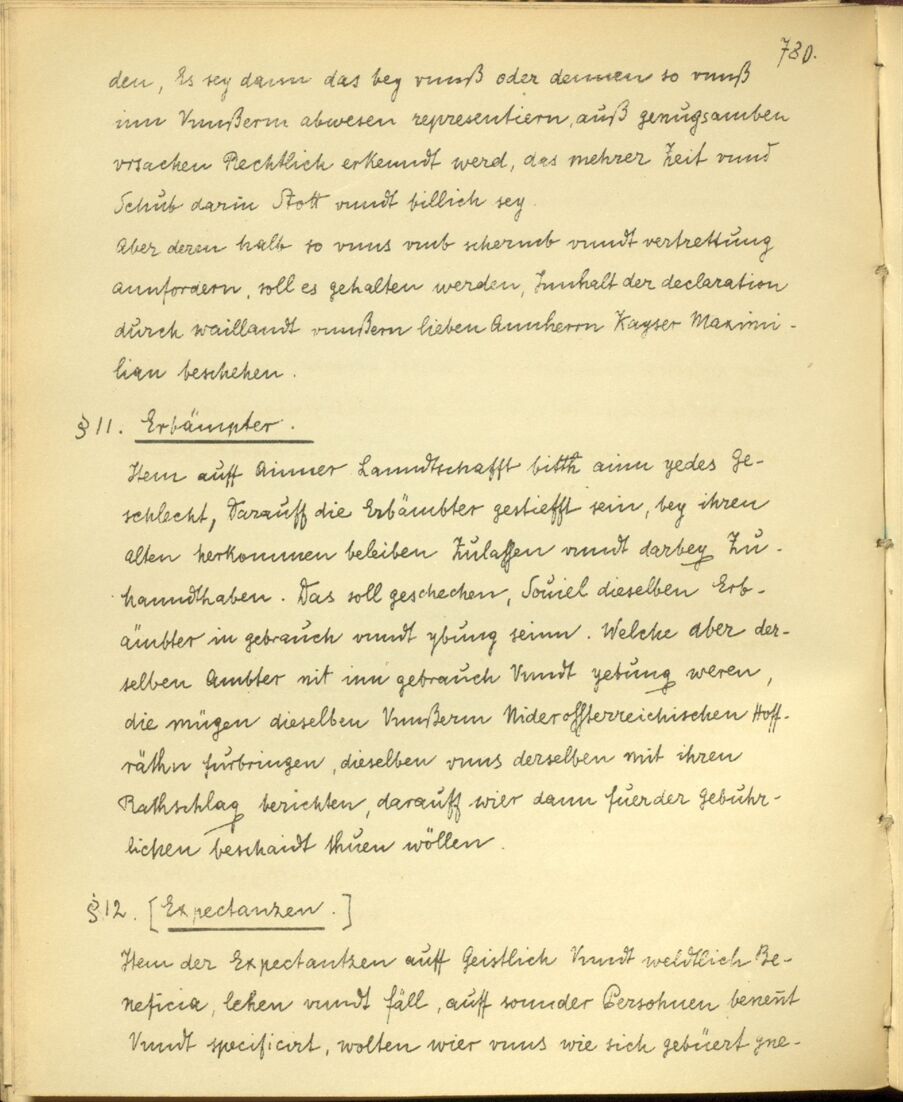 780.
den, Es sey dann das bey vnnß oder dennen so vnnß
inn Vnnßerm abwesen representiern, auß genugsamben
vrsachen Rechtlich erkenndt werd, das mehrer Zeit vnnd
Schub darin Statt vnndt billich sey.
Aber deren halb so vnns vmb schermb vnndt vertrettung
annfordern, soll es gehalten werden, Innhalt der declaration
durch waillandt vnnßern lieben Annherrn Kayser Maximi-
lian beschehen.
§ 11. Erbämpter.
Item auff Ainner Lanndtschafft bitth ainn yedes Ge-
schlecht, Darauff die Erbämbter gestiefft sein, bey ihren
alten herkommen beleiben Zulassen vnndt darbey Zu-
hanndthaben. Das soll geschechen, Souiel dieselben Erb-
ämbter in gebrauch vnndt ybung seinn. Welche aber der-
selben Ambter nit inn gebrauch Vnndt yebung weren,
die mügen dieselben Vnnßerm Niderossterreichischen Hoff-
räthn furbringen, dieselben vnns derselben mit ihren
Rathschlag berichten, darauff wier dann fuerder Gebuhr-
lichen beschaidt thuen wöllen.
§ 12. [Expectanzen.]
Item der Expectantzen auff Geistlich Vnndt weldtlich Be-
neficia, lehen vnndt fäll, auff sonnder Persohnen benent
Vnndt specificirt, wolten wier vnns wie sich gebüert gne-